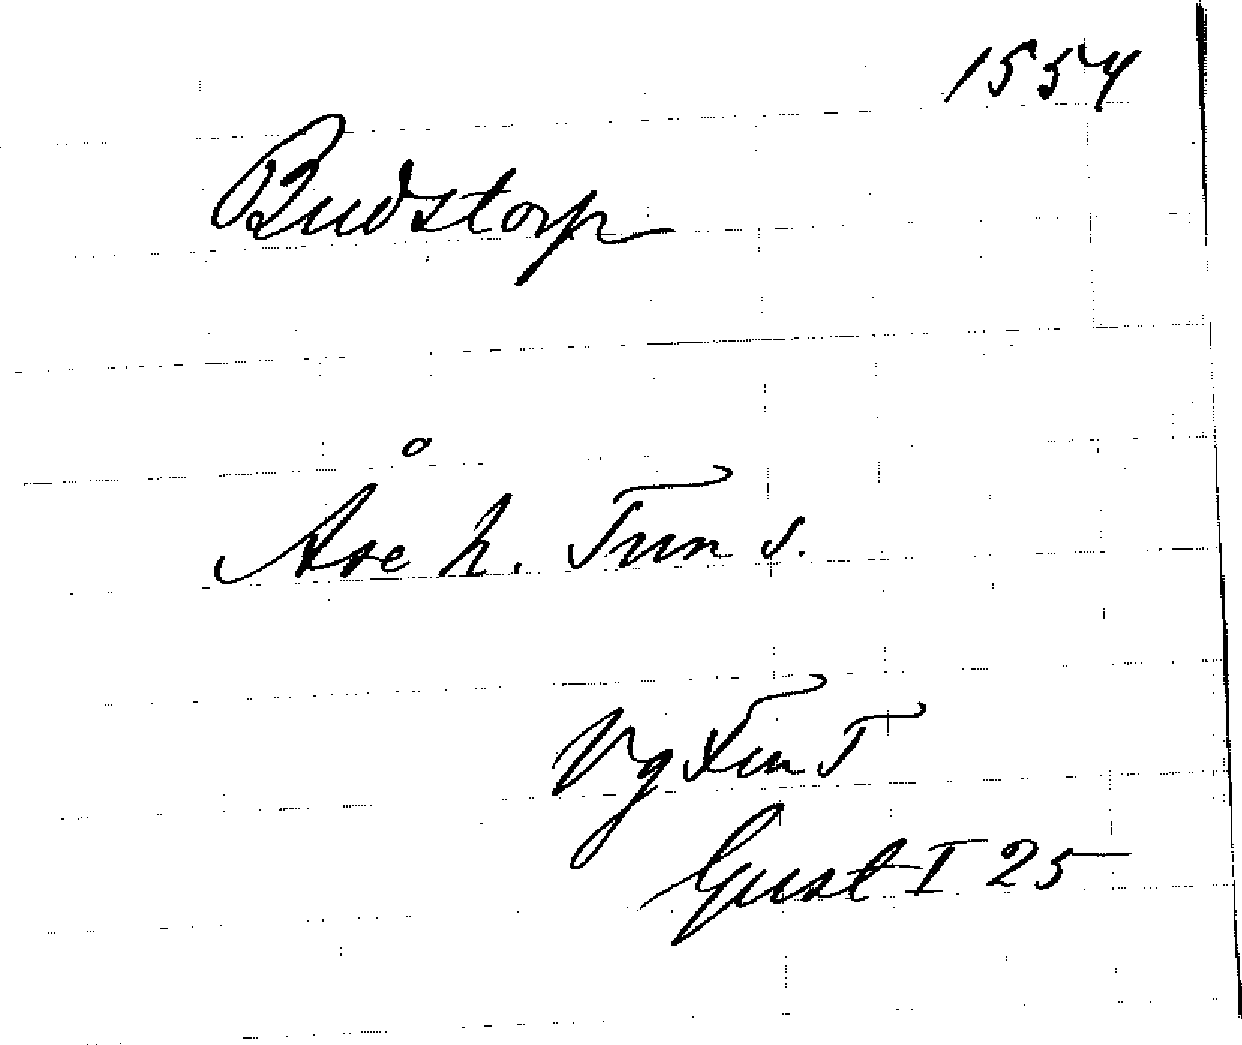 1554
Budstorp
Åse h. Tun s.
Vg Tun T
Gust I 25